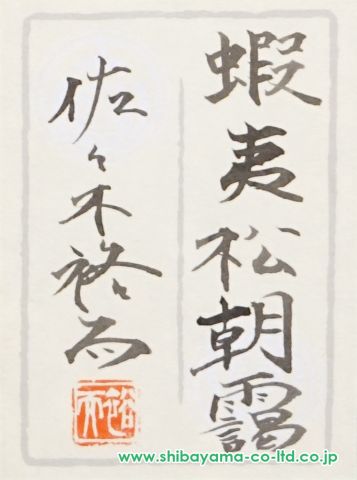 蝦夷松朝靄
佐々木裕而
裕而
www.shibayama-co-ltd.co.jp